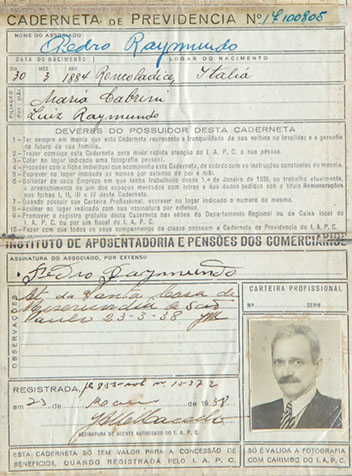 CADERNETA DE PREVIDENCIA Nº 14100805
NOME DO ASSOCIADO
Pedro Raymundo
DATA DO NASCIMENTO LOCAL DO NASCIMENTO
DIA MES ANO
30 3 1884 Italia
FILIAÇÃO
PAI MÃI
Maria Cabrini
Luiz Raymundo
DEVERES DO POSSUIDOR DESTA CADERNETA
1 - Ter sempre em mente que esta Caderneta representa a tranquilidade de sua velhice ou invalidez e a garantia
do futuro de sua familia.
2 - Trazer comsigo esta Caderneta para mais rapida atenção do I. A. P. C. á sua pessoa.
3 - Colar no logar indicado uma fotografia pessoal.
4 - Proceder com a ficha individual que acompanha esta Caderneta, de acôrdo com as instruções constantes da mesma.
5 - Escrever no logar indicado os nomes por extenso de pai e mãi.
6 - Solicitar de cada Empreza em que tenha trabalhado desde 1.º de Janeiro de 1935, ou trabalhe atualmente,
o preenchimento de um dos espaços marcados com letras e dos dedos pedidos sob o titulo Remunerações
nas folhas I, II, III e IV desta Caderneta.
7 - Quando possuir sua Carteira Profissional, escrever no logar indicado o numero da mesma.
8 - Assinar no logar indicado com sua assinatura por extenso.
9 - Promover o registro gratuito desta Caderneta nas sédes do Departamento Regional ou da Caixa local do
I. A. P. C. ou por um fiscal do I. A. P. C.
10 - Fazer com que todos os seus companheiros de classe possuam a Caderneta de Previdencia do I. A. P. C.
INSTITUTO DE APOSENTADORIA E PENSÕES DOS COMERCIARIOS
ASSINATURA DO ASSOCIADO, POR EXTENSO
Pedro Raymundo
OBSERVAÇÕES
St. da Santa Casa de
Misericordia de São
Paulo 23-3-38
CARTEIRA PROFISSIONAL
Nº SERIE
REGISTRADA,
em 23 1938
ASSINATURA DE AGENTE AUTORISADO DO I. A. P. C.
ESTA CADERNETA SÓ TEM VALOR PARA A CONCESSÃO DE
BENEFICIOS, QUANDO REGISTRADA PELO I. A. P. C.
SÓ É VALIDA A FOTOGRAFIA
COM CARIMBO DO I. A. P. C.